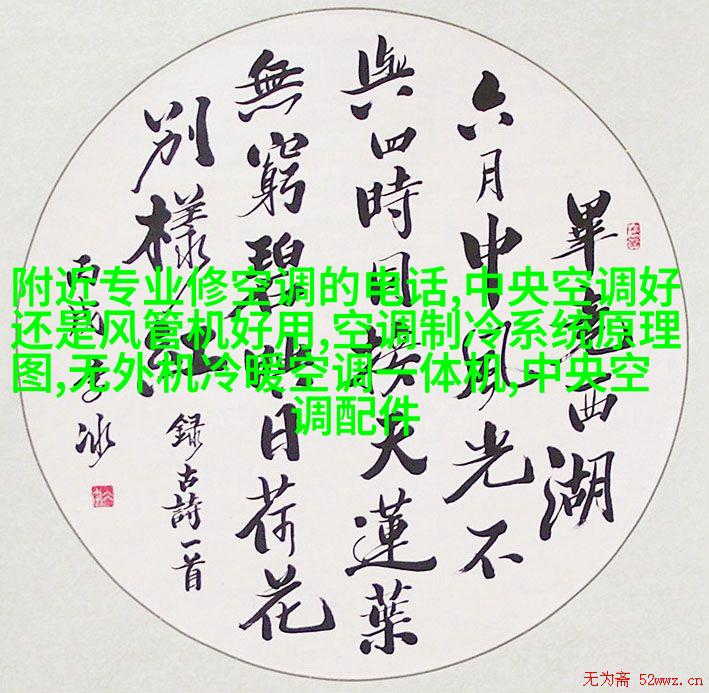 畢竟西湖
六月中風光不
與四時同接天蓮葉
無窮碧映日荷花
別樣紅
錄古詩一首
丙戌冰
附近专业修空调的电话,中央空调好
还是风管机好用,空调制冷系统原理
图,无外机冷暖空调一体机,中央空
调配件
无为斋 52wwz.cn